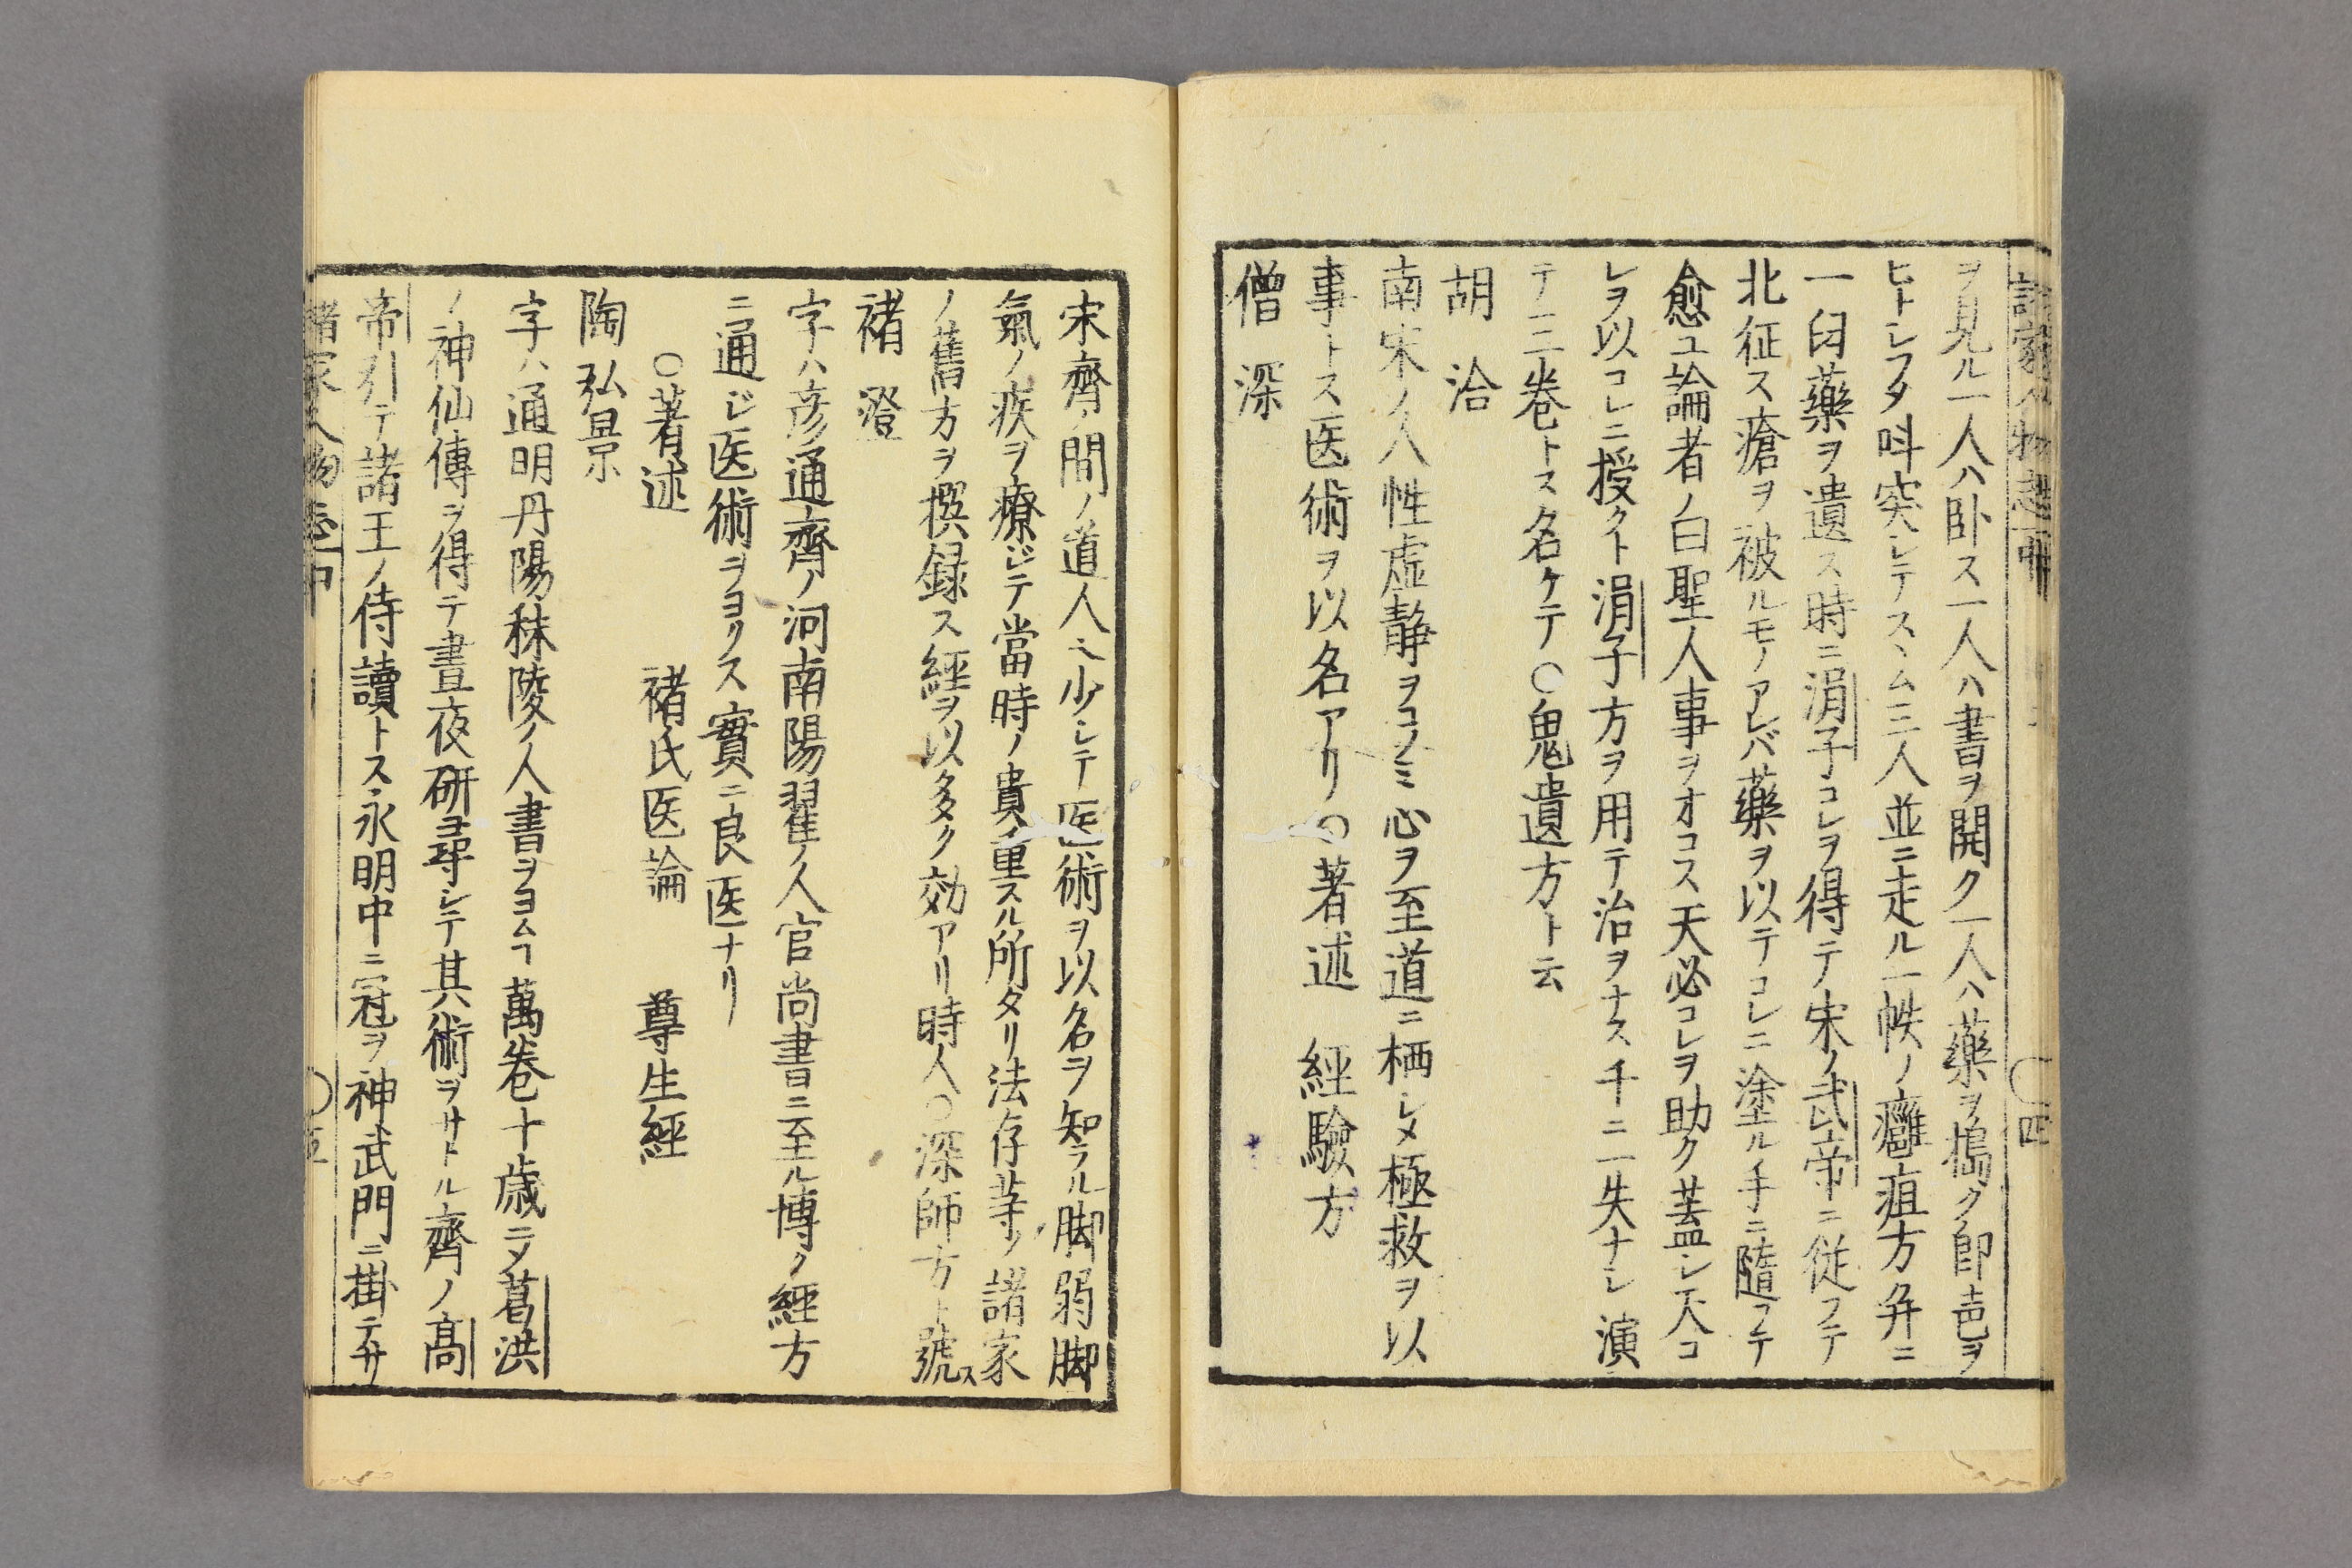 諸家人物志 中 ○四
ヲ見ル一人ハ卧ス一人ハ書ヲ開ク一人ハ藥ヲ搗ク即邑ヲ
ヒトシフタ呌突シテスヽム三人並ニ走ル一帙ノ癰疽方弁ニ
一臼藥ヲ遺ス時ニ涓子コレヲ得テ宋ノ武帝ニ従フテ
北征ス瘡ヲ被ルモノアレバ藥ヲ以テコレニ塗ル手ニ隨フテ
愈ユ論者ノ曰聖人事ヲオコス天必コレヲ助ク蓋シ天コ
レヲ以コレニ授クト涓子方ヲ用テ治ヲナス千ニ一失ナシ演
テ三巻トス名ケテ○鬼遺方ト云
胡洽
南宋ノ人性虚静ヲコノミ心ヲ至道ニ栖シメ極救ヲ以
事トス医術ヲ以名アリ○著述 経驗方
僧深
宋齊ノ間ノ道人ニ少シテ医術ヲ以名ヲ知ラル脚弱脚
氣ノ疾ヲ療ジテ當時ノ貴重スル所タリ法存等ノ諸家
ノ舊方ヲ撰録ス経ヲ以多ク効アリ時人○深師方ト號ス
褚澄
字ハ彦通齊ノ河南陽翟ノ人官尚書ニ至ル博ク経方
ニ通ジ医術ヲヨクス實ニ良医ナリ
○著述 褚氏医論 尊生經
陶弘景
字ハ通明丹陽秣陵ノ人書ヲヨムヿ萬巻十歳ニメ葛洪
ノ神仙傳ヲ得テ晝夜研尋シテ其術ヲサトル齊ノ髙
帝引テ諸王ノ侍讀トス永明中ニ冠ヲ神武門ニ掛テサリ
諸家人物志 中 ○五